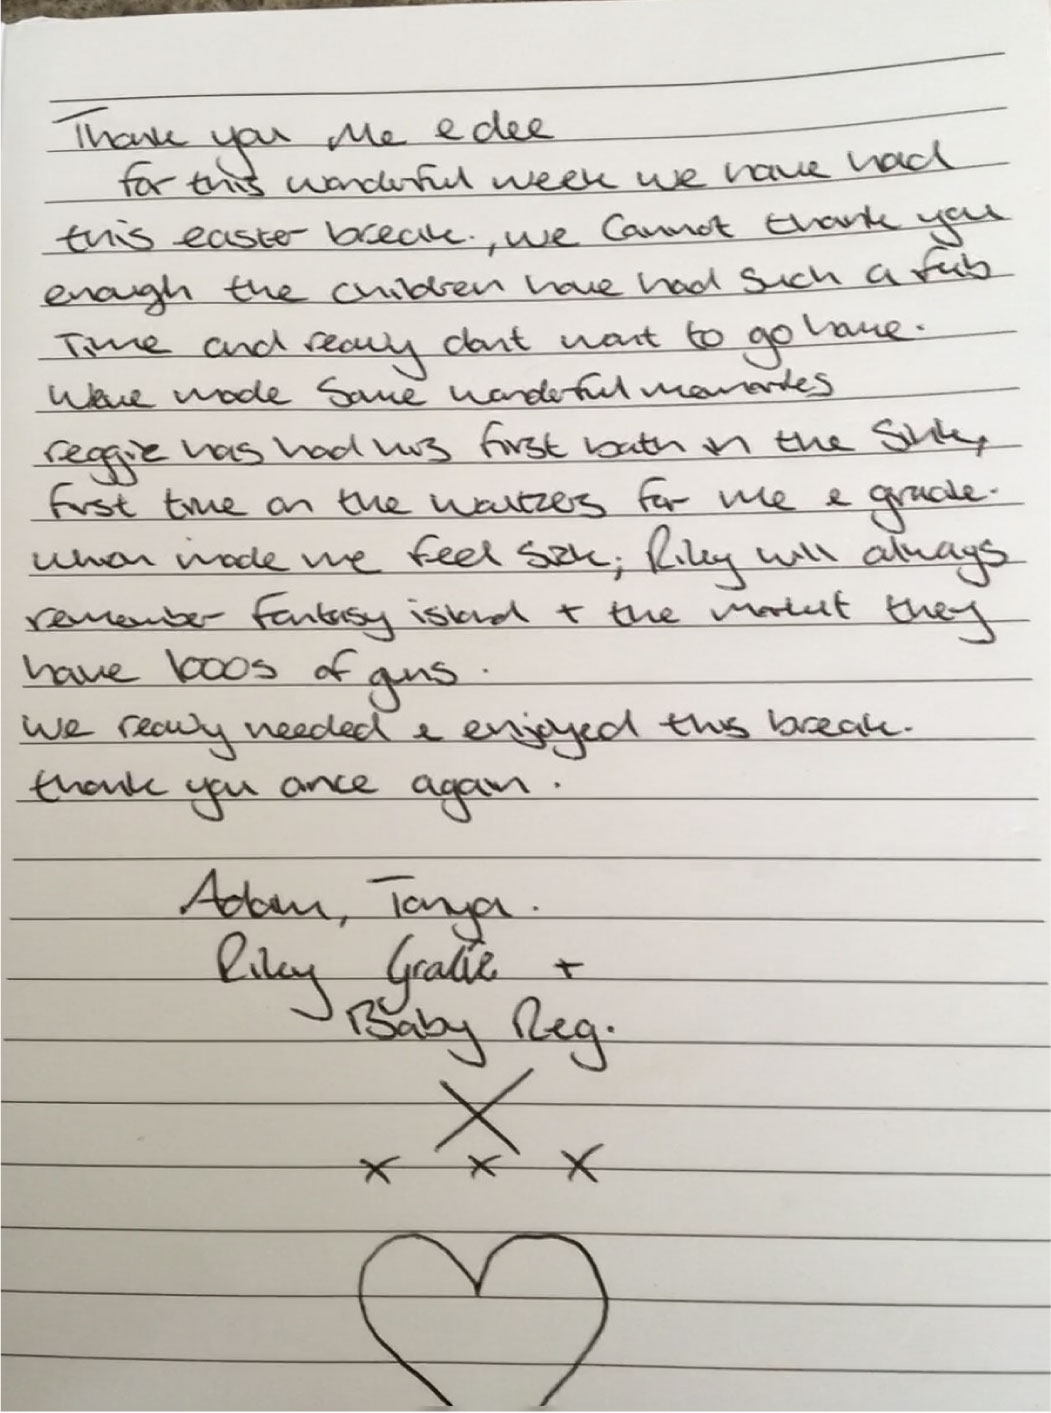 Thank you Me e dee
for this wonderful week we have had
this easter break., we Cannot thank you
enough the children have had Such a fab
Time and really dont want to go home.
Weve made Some wonderful memories
reggie has had his first bath in the Sink,
first time on the waltzers for me e gracie.
which made me feel sick; Riley will always
remember fantasy island + the market they
have 1000s of guns.
We really needed e enjoyed this break.
thank you once again.
Adam, Tanya.
Riley Gracie +
Baby Reg.
X
x x x